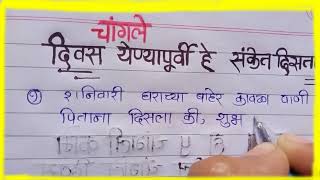 चांगले
दिवस येण्यापूर्वी हे संकेत दिसत
१) शनिवारी घराच्या बाहेर कावळा पाणी
पिताना दिसला की, शुभ